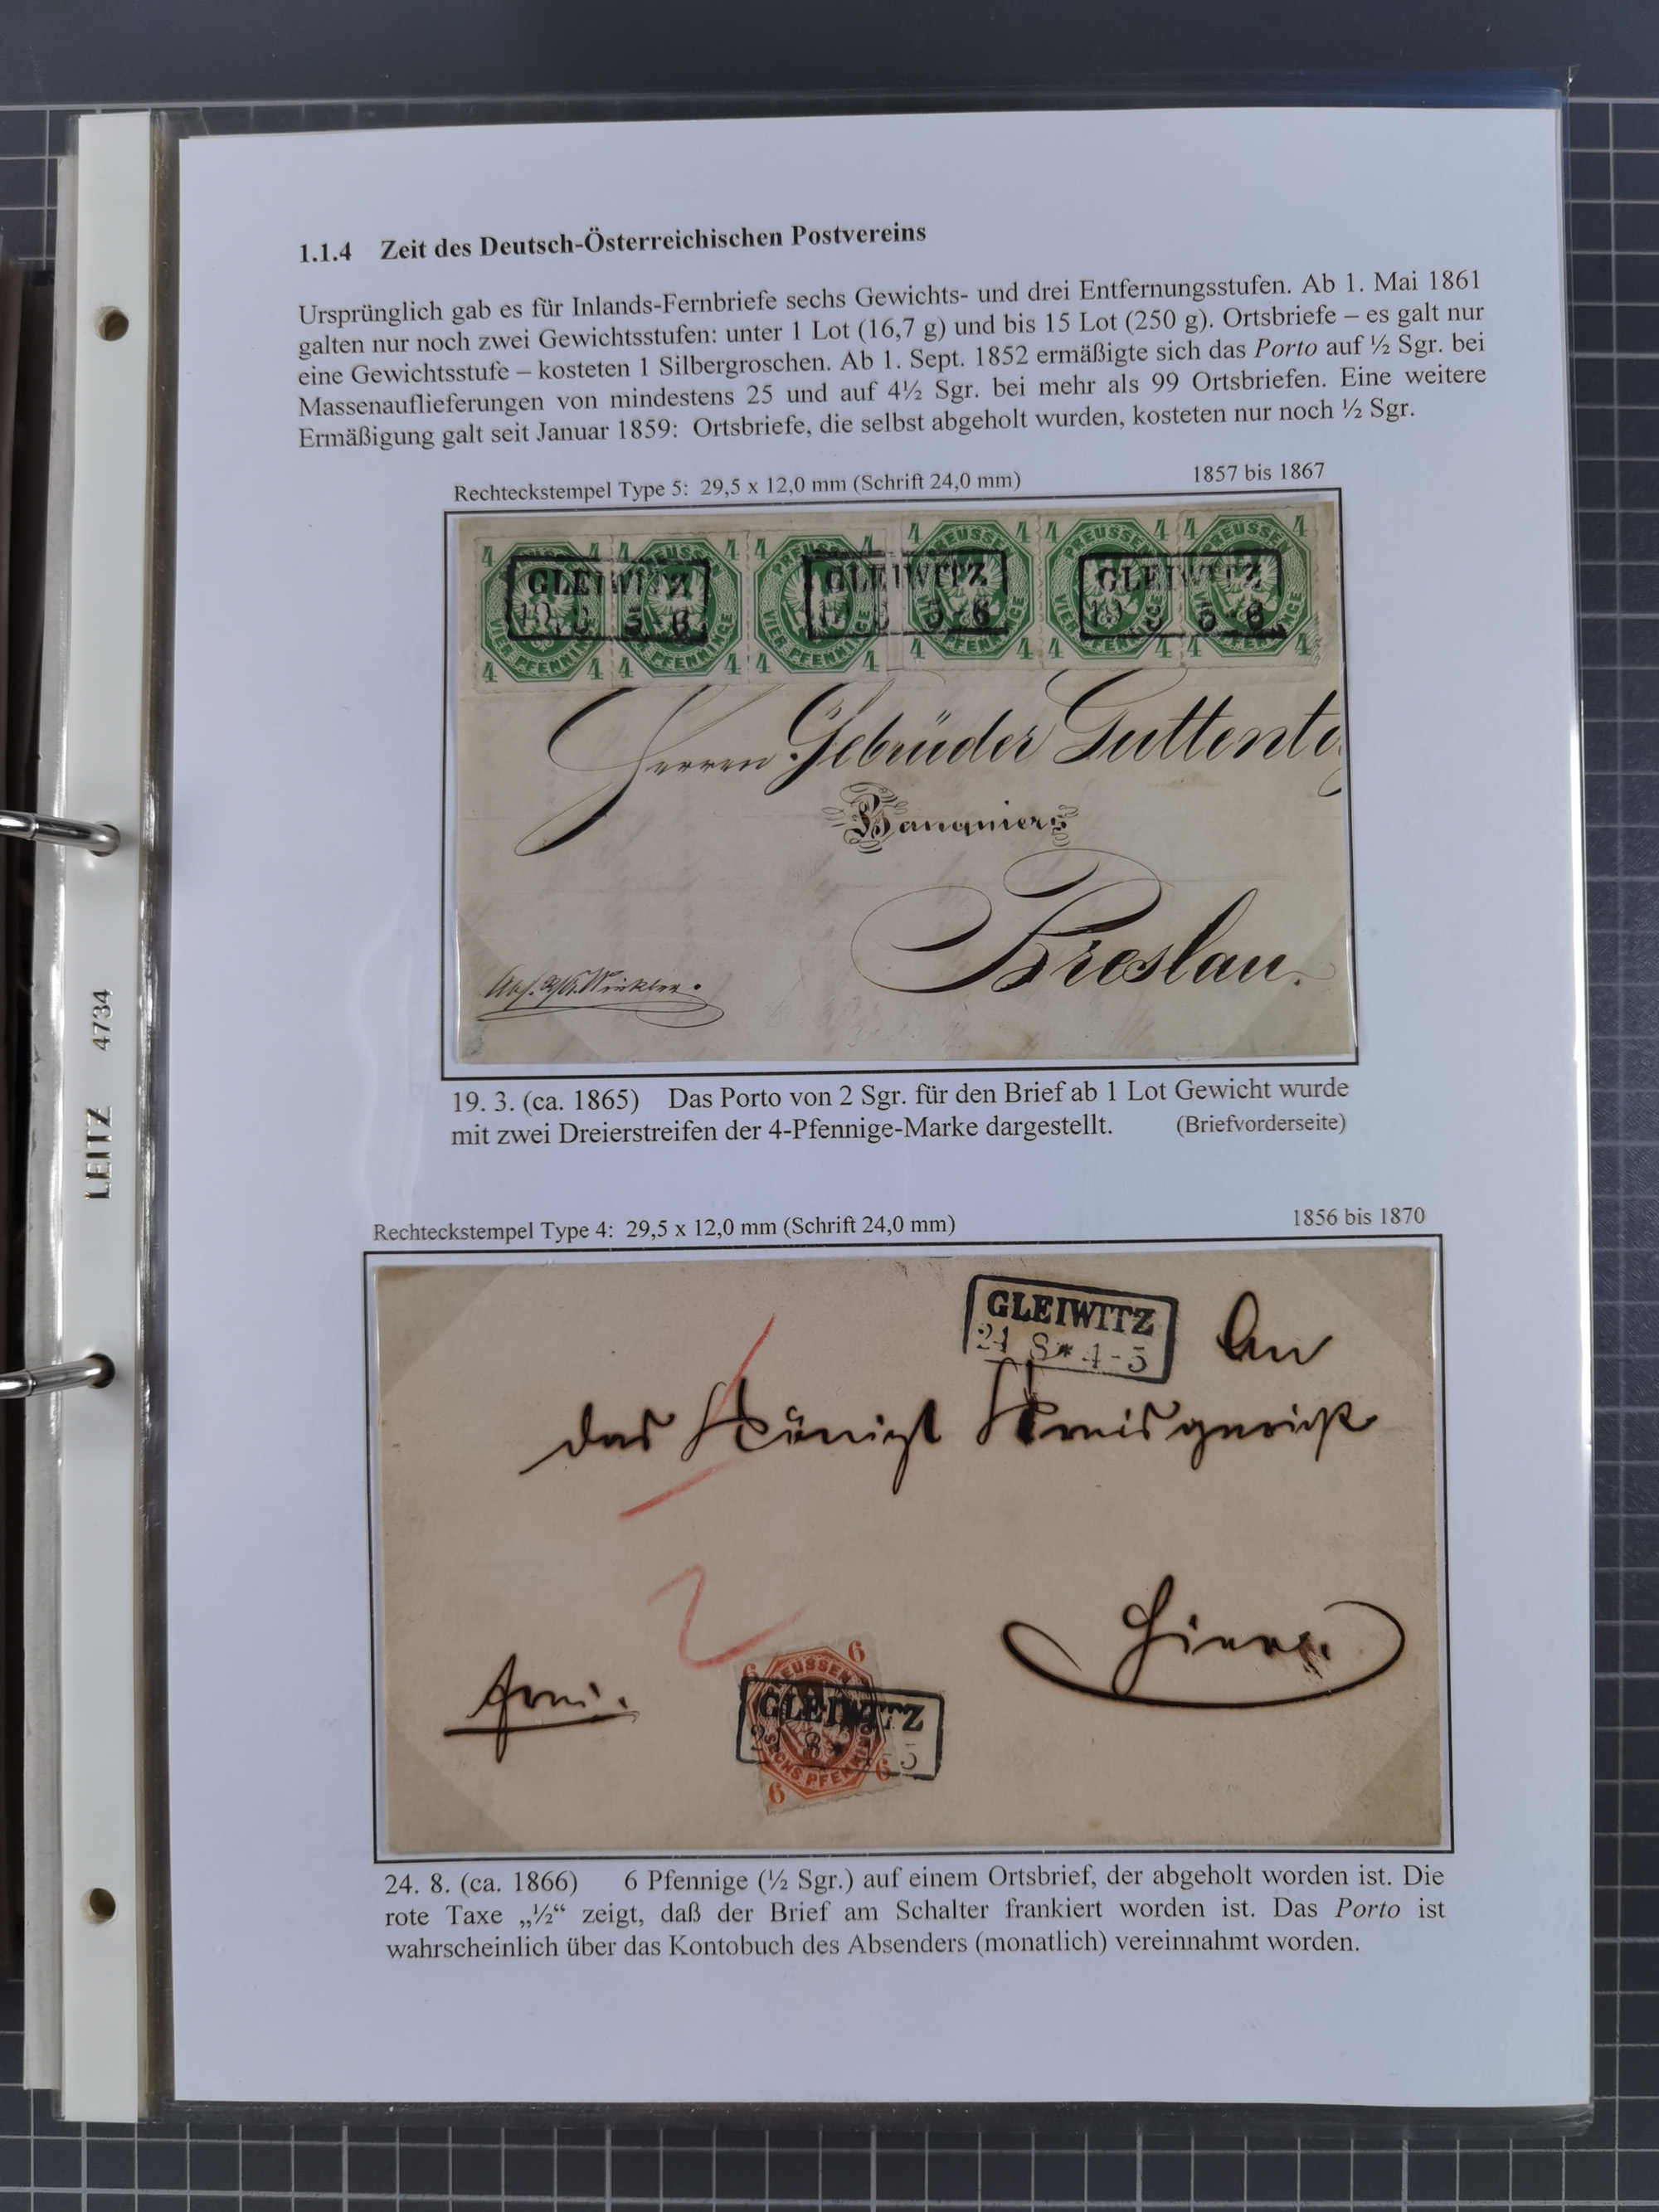 1.1.4 Zeit des Deutsch-Österreichischen Postvereins
Ursprünglich gab es für Inlands-Fernbriefe sechs Gewichts- und drei Entfernungsstufen. Ab 1. Mai 1861
galten nur noch zwei Gewichtsstufen: unter 1 Lot (16,7 g) und bis 15 Lot (250 g). Ortsbriefe – es galt nur
eine Gewichtsstufe – kosteten 1 Silbergroschen. Ab 1. Sept. 1852 ermäßigte sich das Porto auf ½ Sgr. bei
Massenauflieferungen von mindestens 25 und auf 4½ Sgr. bei mehr als 99 Ortsbriefen. Eine weitere
Ermäßigung galt seit Januar 1859: Ortsbriefe, die selbst abgeholt wurden, kosteten nur noch ½ Sgr.
Rechteckstempel Type 5: 29,5 x 12,0 mm (Schrift 24,0 mm) 1857 bis 1867
4 4 4 4 4 4 4 4 4 4 4 4
PREUSSEN PREUSSEN PREUSSEN PREUSSEN
GLEIWITZ GLEIWITZ GLEIWITZ
19 3 5-6 19 3 5-6 19 3 5-6
VIER PFENNINGE VIER PFENNINGE VIER PFENNINGE VIER PFENNINGE
4 4 4 4 4 4 4 4 4 4 4 4
Herren Gebrüder Guttenta
Banquiers
Breslau.
Winkler.
19. 3. (ca. 1865) Das Porto von 2 Sgr. für den Brief ab 1 Lot Gewicht wurde
mit zwei Dreierstreifen der 4-Pfennige-Marke dargestellt. (Briefvorderseite)
Rechteckstempel Type 4: 29,5 x 12,0 mm (Schrift 24,0 mm) 1856 bis 1870
GLEIWITZ
24 8 * 4-5
An
das Königl Kreisgericht
2
Hier.
frei.
6 6
PREUSSEN
GLEIWITZ
24 8 * 4-5
SECHS PFENNINGE
6 6
24. 8. (ca. 1866) 6 Pfennige (½ Sgr.) auf einem Ortsbrief, der abgeholt worden ist. Die
rote Taxe „½“ zeigt, daß der Brief am Schalter frankiert worden ist. Das Porto ist
wahrscheinlich über das Kontobuch des Absenders (monatlich) vereinnahmt worden.
LEITZ 4734